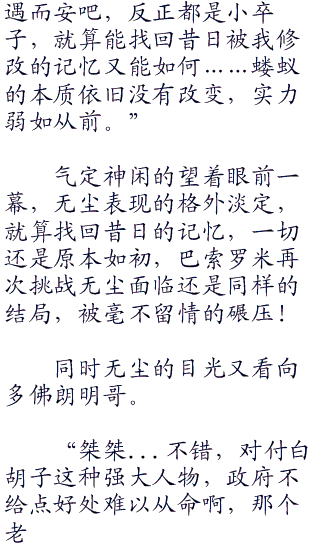 遇而安吧，反正都是小卒
子，就算能找回昔日被我修
改的记忆又能如何……蝼蚁
的本质依旧没有改变，实力
弱如从前。”
气定神闲的望着眼前一
幕，无尘表现的格外淡定，
就算找回昔日的记忆，一切
还是原本如初，巴索罗米再
次挑战无尘面临还是同样的
结局，被毫不留情的碾压！
同时无尘的目光又看向
多佛朗明哥。
“桀桀...不错，对付白
胡子这种强大人物，政府不
给点好处难以从命啊，那个
老